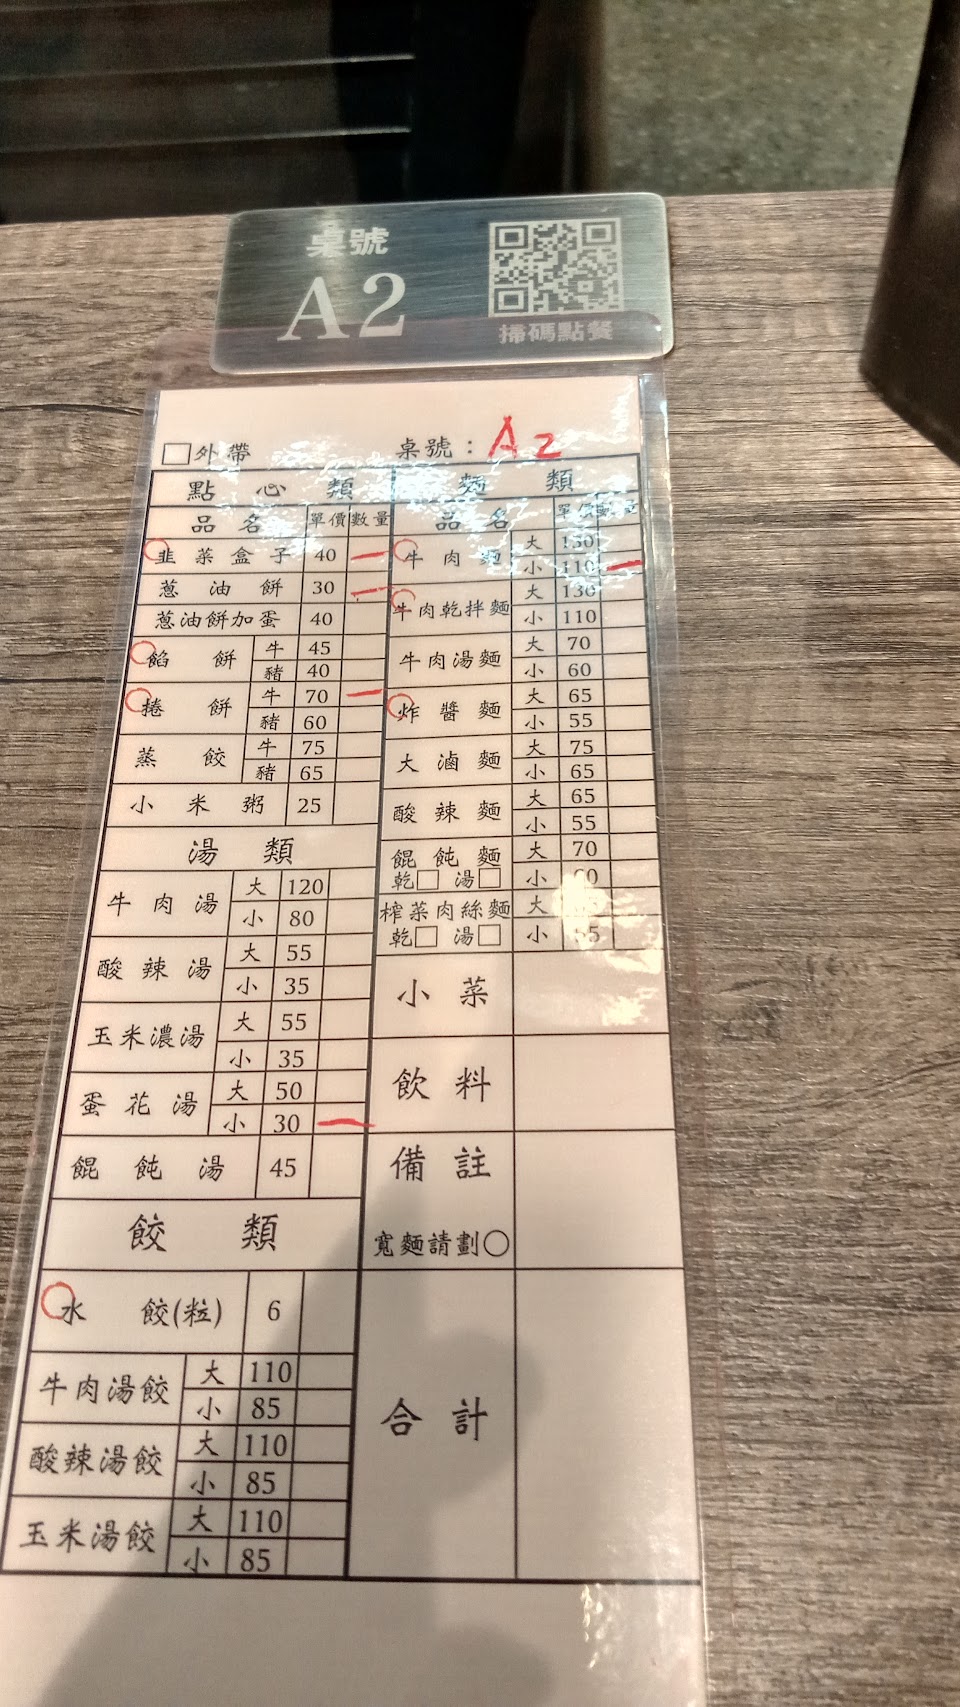 桌號
A2
掃碼點餐
外帶
桌號：A2
點心類
品名 單價 數量
韭菜盒子 40 一
蔥油餅 30 一
蔥油餅加蛋 40
餡餅 牛 45
豬 40
捲餅 牛 70 一
豬 60
蒸餃 牛 75
豬 65
小米粥 25
湯類
牛肉湯 大 120
小 80
酸辣湯 大 55
小 35
玉米濃湯 大 55
小 35
蛋花湯 大 50
小 30 一
餛飩湯 45
餃類
水餃(粒) 6
牛肉湯餃 大 110
小 85
酸辣湯餃 大 110
小 85
玉米湯餃 大 110
小 85
麵類
品名 單價 數量
牛肉麵 大 130
小 110 一
牛肉乾拌麵 大 130
小 110
牛肉湯麵 大 70
小 60
炸醬麵 大 65
小 55
大滷麵 大 75
小 65
酸辣麵 大 65
小 55
餛飩麵 大 70
乾 湯 小 60
榨菜肉絲麵 大
乾 湯 小
小菜
飲料
備註
寬麵請劃○
合計